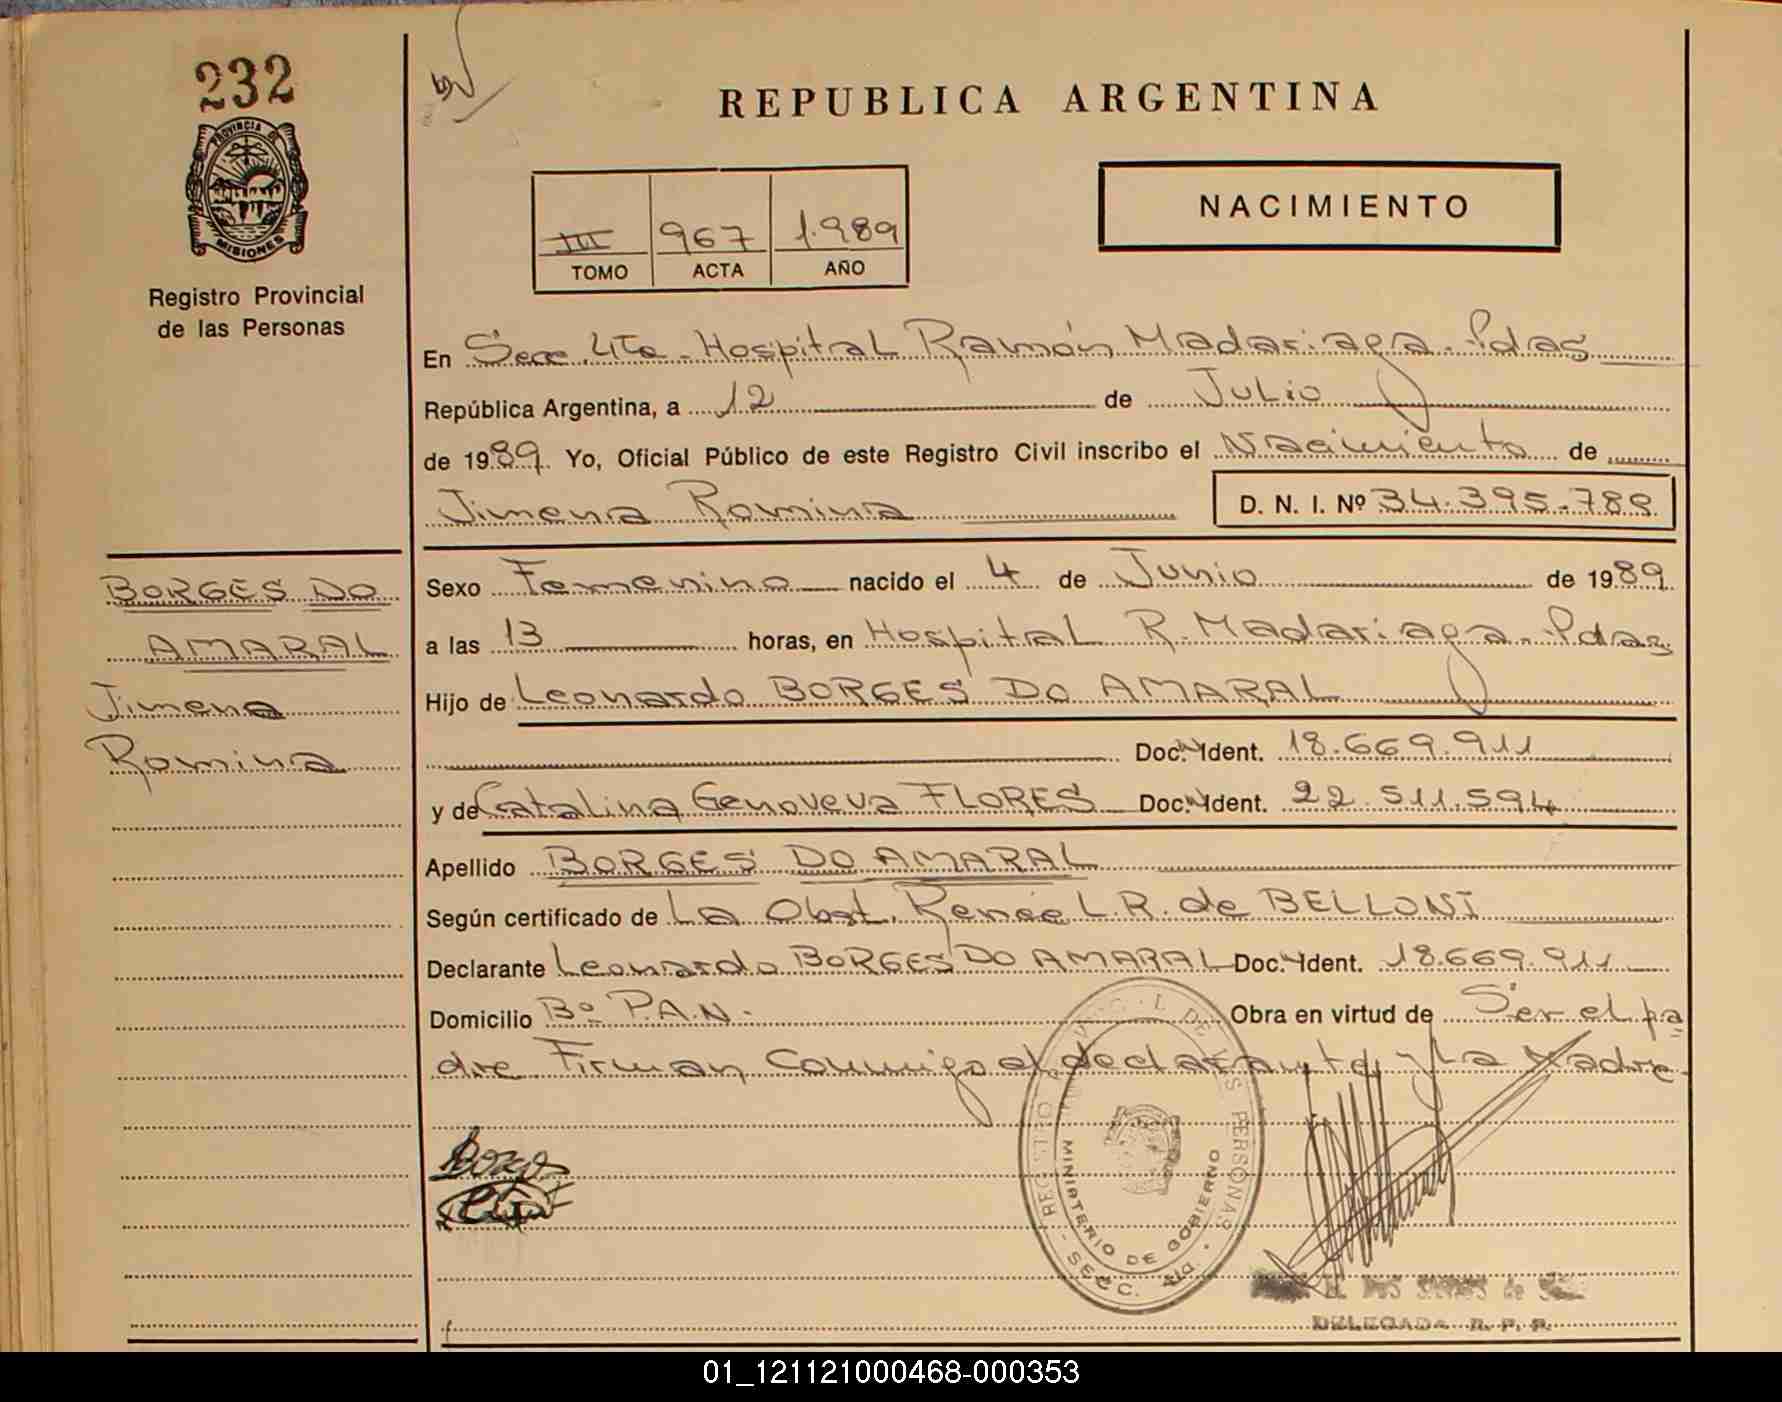 232
PROVINCIA DE
MISIONES
Registro Provincial
de las Personas
BORGES DO
AMARAL
Jimena
Romina
REPUBLICA ARGENTINA
III 967 1.989
TOMO ACTA AÑO
NACIMIENTO
En Secc. 4ta. Hospital Ramón Madariaga. Pdas
República Argentina, a 12 de Julio
de 1989. Yo, Oficial Público de este Registro Civil inscribo el Nacimiento de
Jimena Romina D. N. I. Nº 34.395.789
Sexo Femenino nacido el 4 de Junio de 1989
a las 13 horas, en Hospital R. Madariaga. Pdas
Hijo de Leonardo BORGES DO AMARAL
Doc. Ident. 18.669.911
y de Catalina Genoveva FLORES Doc. Ident. 22.511.594
Apellido BORGES DO AMARAL
Según certificado de La Obst. Renée L.R. de BELLONI
Declarante Leonardo BORGES DO AMARAL Doc. Ident. 18.669.911
Domicilio Bº P.A.N. Obra en virtud de Ser el pa
dre Firman conmigo el declarante y La Madre
Borges
REGISTRO PROVINCIAL DE LAS PERSONAS
MINISTERIO DE GOBIERNO
SECC. 4ta
DELEGADA R. P. P.
01_121121000468-000353